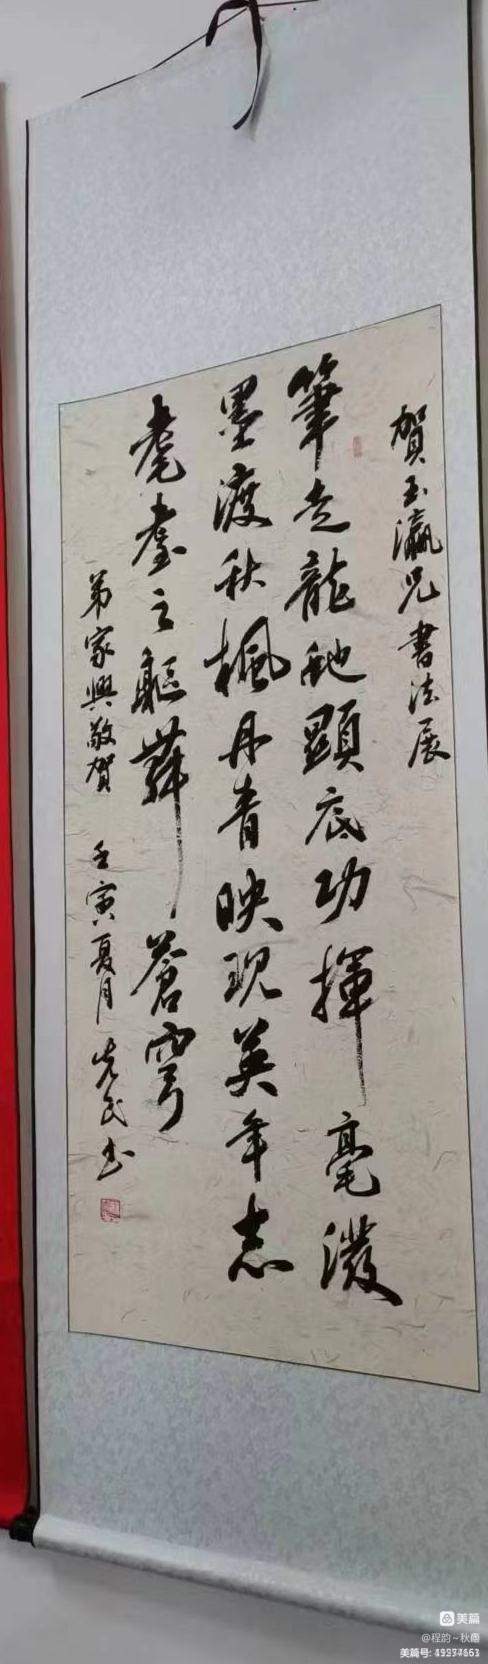 賀玉瀛兄書法展
筆走龍蛇顯底功揮毫潑
墨渡秋楓丹青映現英年志
耄耋之軀舞蒼穹
弟家興敬賀 壬寅夏月 先民书
美篇
@程韵~秋雨
美篇号: